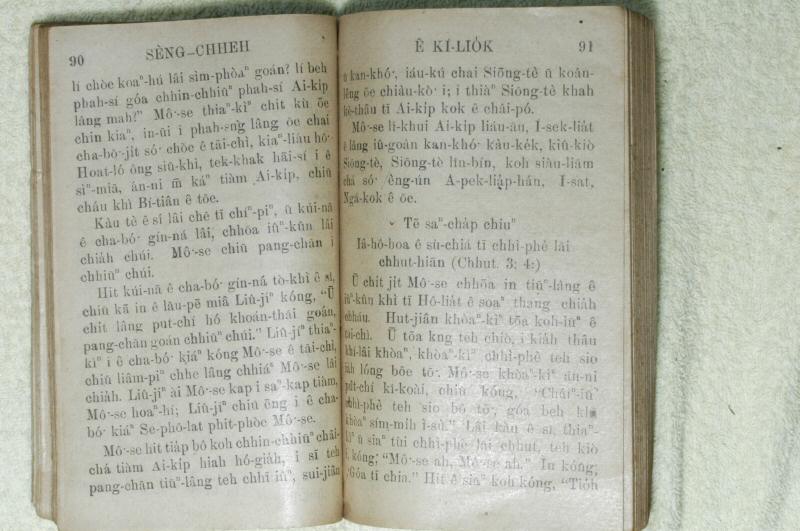 90
SÈNG-CHHEH
lí chòe koaⁿ-hú lâi sím-phòaⁿ goán? lí beh
phah-sí góa chhin-chhiūⁿ phah-sí Ai-ki̍p
lâng mah?” Mô͘-se thiaⁿ-kìⁿ chit kù ōe
chin kiaⁿ, in-ūi i phah-sńg lâng ōe chai
cha-bó͘-ji̍t só͘ chòe ê tāi-chì, kiaⁿ-liáu hō͘
Hoat-ló ông siū-khì, tek-khak hāi-sí i ê
sìⁿ-miā, án-ni m̄ káⁿ tiàm Ai-ki̍p, chiū
cháu khì Bí-tiân ê tōe.
Kàu tè ê sî lâi chē tī chíⁿ-piⁿ, ū kúi-nā
ê cha-bó͘ gín-ná lâi, chhōa iûⁿ-kûn lâi
chia̍h chúi. Mô͘-se chiū pang-chān i
chhiūⁿ chúi.
Hit kúi-nā ê cha-bó͘ gín-ná tò-khì ê sî,
chiū kā in ê lāu-pē miâ Liû-jíⁿ kóng, “Ū
chi̍t lâng put-chí hó khoán-thāi goán,
pang-chān goán chhiūⁿ chúi.” Liû-jíⁿ thiaⁿ-
kìⁿ i ê cha-bó͘ kiáⁿ kóng Mô͘-se ê tāi-chì,
chiū liâm-piⁿ chhe lâng chhiáⁿ Mô͘-se lâi
chia̍h. Liû-jíⁿ ài Mô͘-se kap i saⁿ-kap tiàm,
Mô͘-se hoaⁿ-hí; Liû-jíⁿ chiū èng i ê cha-
bó͘ kiáⁿ Se-phó-lat phit-phòe Mô͘-se.
Mô͘-se hit tia̍p bô koh chhin-chhiūⁿ chāi-
chá tiàm Ai-ki̍p hiah hó-gia̍h, i sī teh
pang-chān tiūⁿ-lâng teh chhī iûⁿ, sui-jiân
Ê KÌ-LIO̍K
91
ū kan-khó͘, iáu-kú chai Siōng-tè ū koân-
lêng ōe chiàu-kò͘ i; i thiàⁿ Siōng-tè khah
kè-thâu tī Ai-ki̍p kok ê châi-pó.
Mô͘-se lī-khui Ai-ki̍p liáu-āu, Í-sek-lia̍t
ê lâng iû-goân kan-khó͘ kàu-ke̍k, kiû-kiò
Siōng-tè, Siōng-tè lîn-bín, koh siàu-liām
chá só͘ èng-ún A-pek-lia̍p-hán, Í-sat,
Ngá-kok ê ōe.
Tē saⁿ-cha̍p chiuⁿ
Iâ-hô-hoa ê sù-chiá tī chhì-phè lāi
chhut-hiān (Chhut. 3: 4:)
Ū chi̍t ji̍t Mô͘-se chhōa in tiūⁿ-lâng ê
iûⁿ-kûn khì tī Hô-lia̍t ê soaⁿ thang chia̍h
chháu. Hut-jiân khòaⁿ-kìⁿ tōa koh-iūⁿ ê
tāi-chì. Ū tōa kng teh chiò, i kia̍h thâu
khí-lâi khòaⁿ, khòaⁿ-kìⁿ chhì-phè teh sio
iàh lóng bōe tō͘. Mô͘-se khòaⁿ-kìⁿ án-ni
put-chí kî-koài, chiū kóng, “Cháiⁿ-iūⁿ
chhì-phè teh sio bô tō͘, góa beh khì
khòaⁿ sím-mi̍h ì-sù.” Lâi kàu ê sî, thiaⁿ-
kìⁿ ū siaⁿ tùi chhì-phè lāi chhut, teh kiò
i, kóng; “Mô͘-se ah, Mô͘-se ah.” Ìn kóng,
“Góa tī chia.” Hit ê siaⁿ koh kóng, “Tio̍h